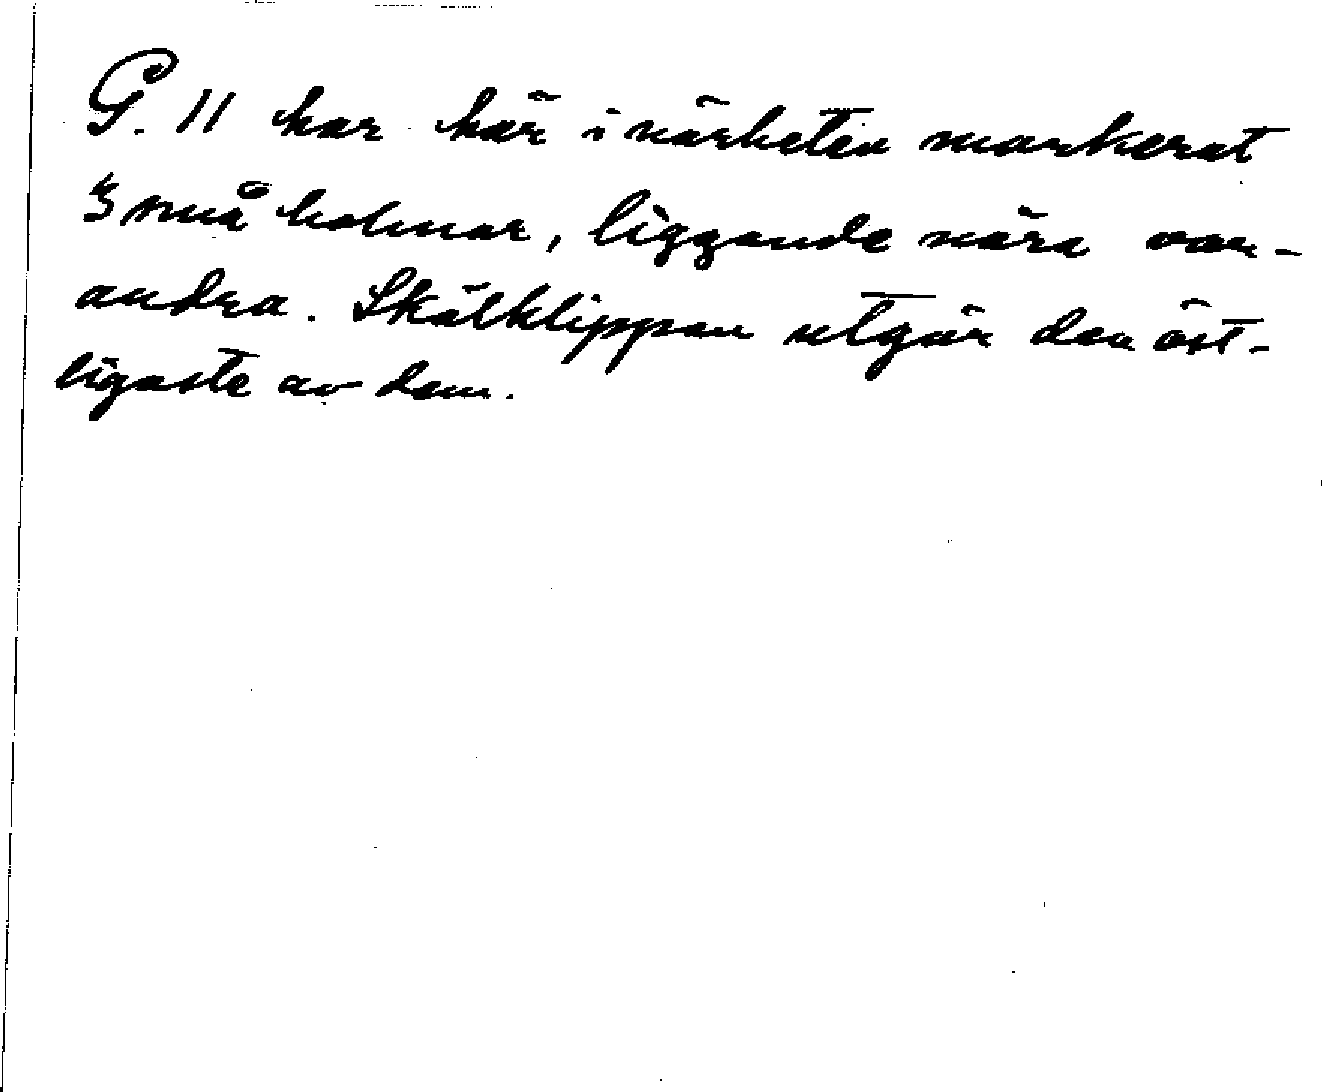 G. 11 har här i närheten markerat
3 små holmar, liggande nära var-
andra. Skälklippan utgör den öst-
ligaste av dem.